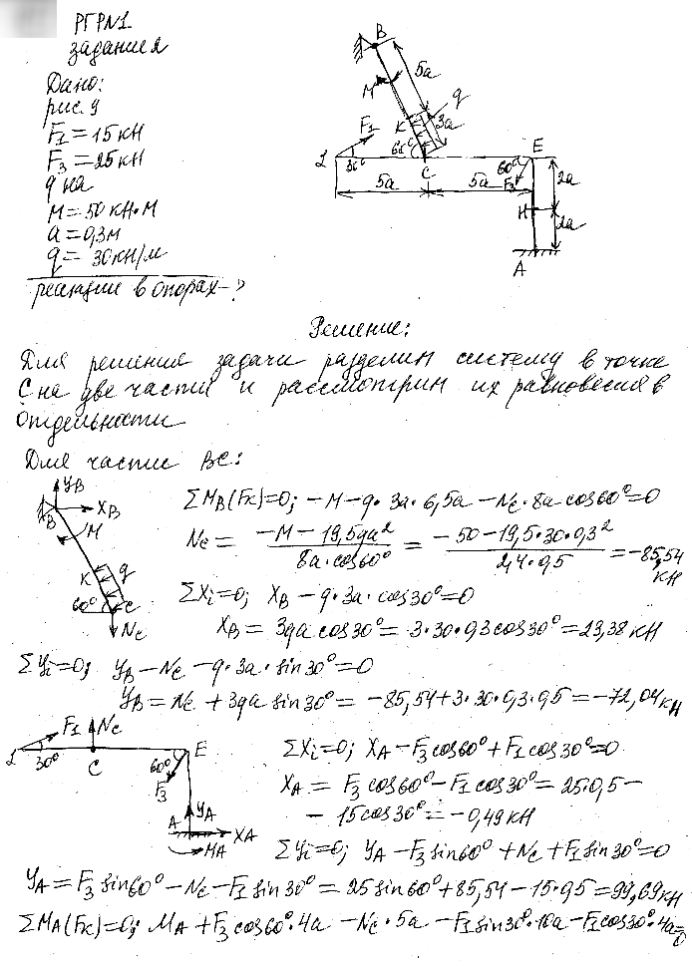 РГР№1
задания
Дано:
рис. 9
F1 = 15 кН
F3 = 25 кН
q на
M = 50 кН·М
a = 0,3м
q = 30 кН/м
реакции в опорах - ?
B
5a
M
q
K
3a
F1
60°
E
L
30°
C
60°
F3
5a
5a
2a
H
2a
A
Решение:
Для решения задачи разделим систему в точке
C на две части и рассмотрим их равновесия в
отдельности
Для части BC:
YB
XB
B
M
K
q
60°
C
NC
ΣMB(FK)=0; -M-q·3a·6,5a-NC·8a cos60°=0
NC = (-M-19,5qa²)/(8a·cos60°) = (-50-19,5·30·0,3²)/(2,4·0,5) = -85,54 кН
ΣXi=0; XB-q·3a·cos30°=0
XB = 3qa cos30° = 3·30·0,3cos30° = 23,38 кН
ΣYi=0; YB-NC-q·3a·sin30°=0
YB = NC+3qa sin30° = -85,54+3·30·0,3·0,5 = -72,04 кН
F1
NC
L
30°
C
E
60°
F3
YA
A
XA
MA
ΣXi=0; XA-F3cos60°+F1cos30°=0
XA = F3cos60°-F1cos30° = 25·0,5-
-15cos30° = -0,49 кН
ΣYi=0; YA-F3sin60°+NC+F1sin30°=0
YA = F3sin60°-NC-F1sin30° = 25sin60°+85,54-15·0,5 = 99,69 кН
ΣMA(FK)=0; MA+F3cos60°·4a-NC·5a-F1sin30°·10a-F1cos30°·4a=0